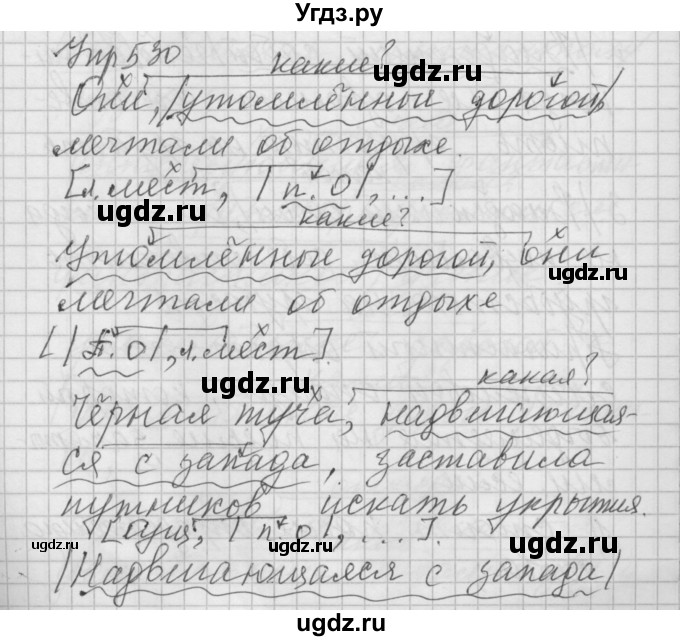 Угдз.ру
Упр 530
какие?
Они, |утомлённые дорогой|,
мечтали об отдыхе.
[л.мест, | п. О|, ...].
какие?
Утомлённые дорогой, они
мечтали об отдыхе
[|П. О|, л.мест].
какая?
Чёрная туча, надвигающая-
ся с запада, заставила
путников искать укрытия.
[сущ, | п. о|, ...].
|Надвигающаяся с запада|
ugdz.ru
ugdz.ru
ugdz.ru
ugdz.ru
ugdz.ru
ugdz.ru
ugdz.ru
ugdz.ru
ugdz.ru
ugdz.ru
ugdz.ru